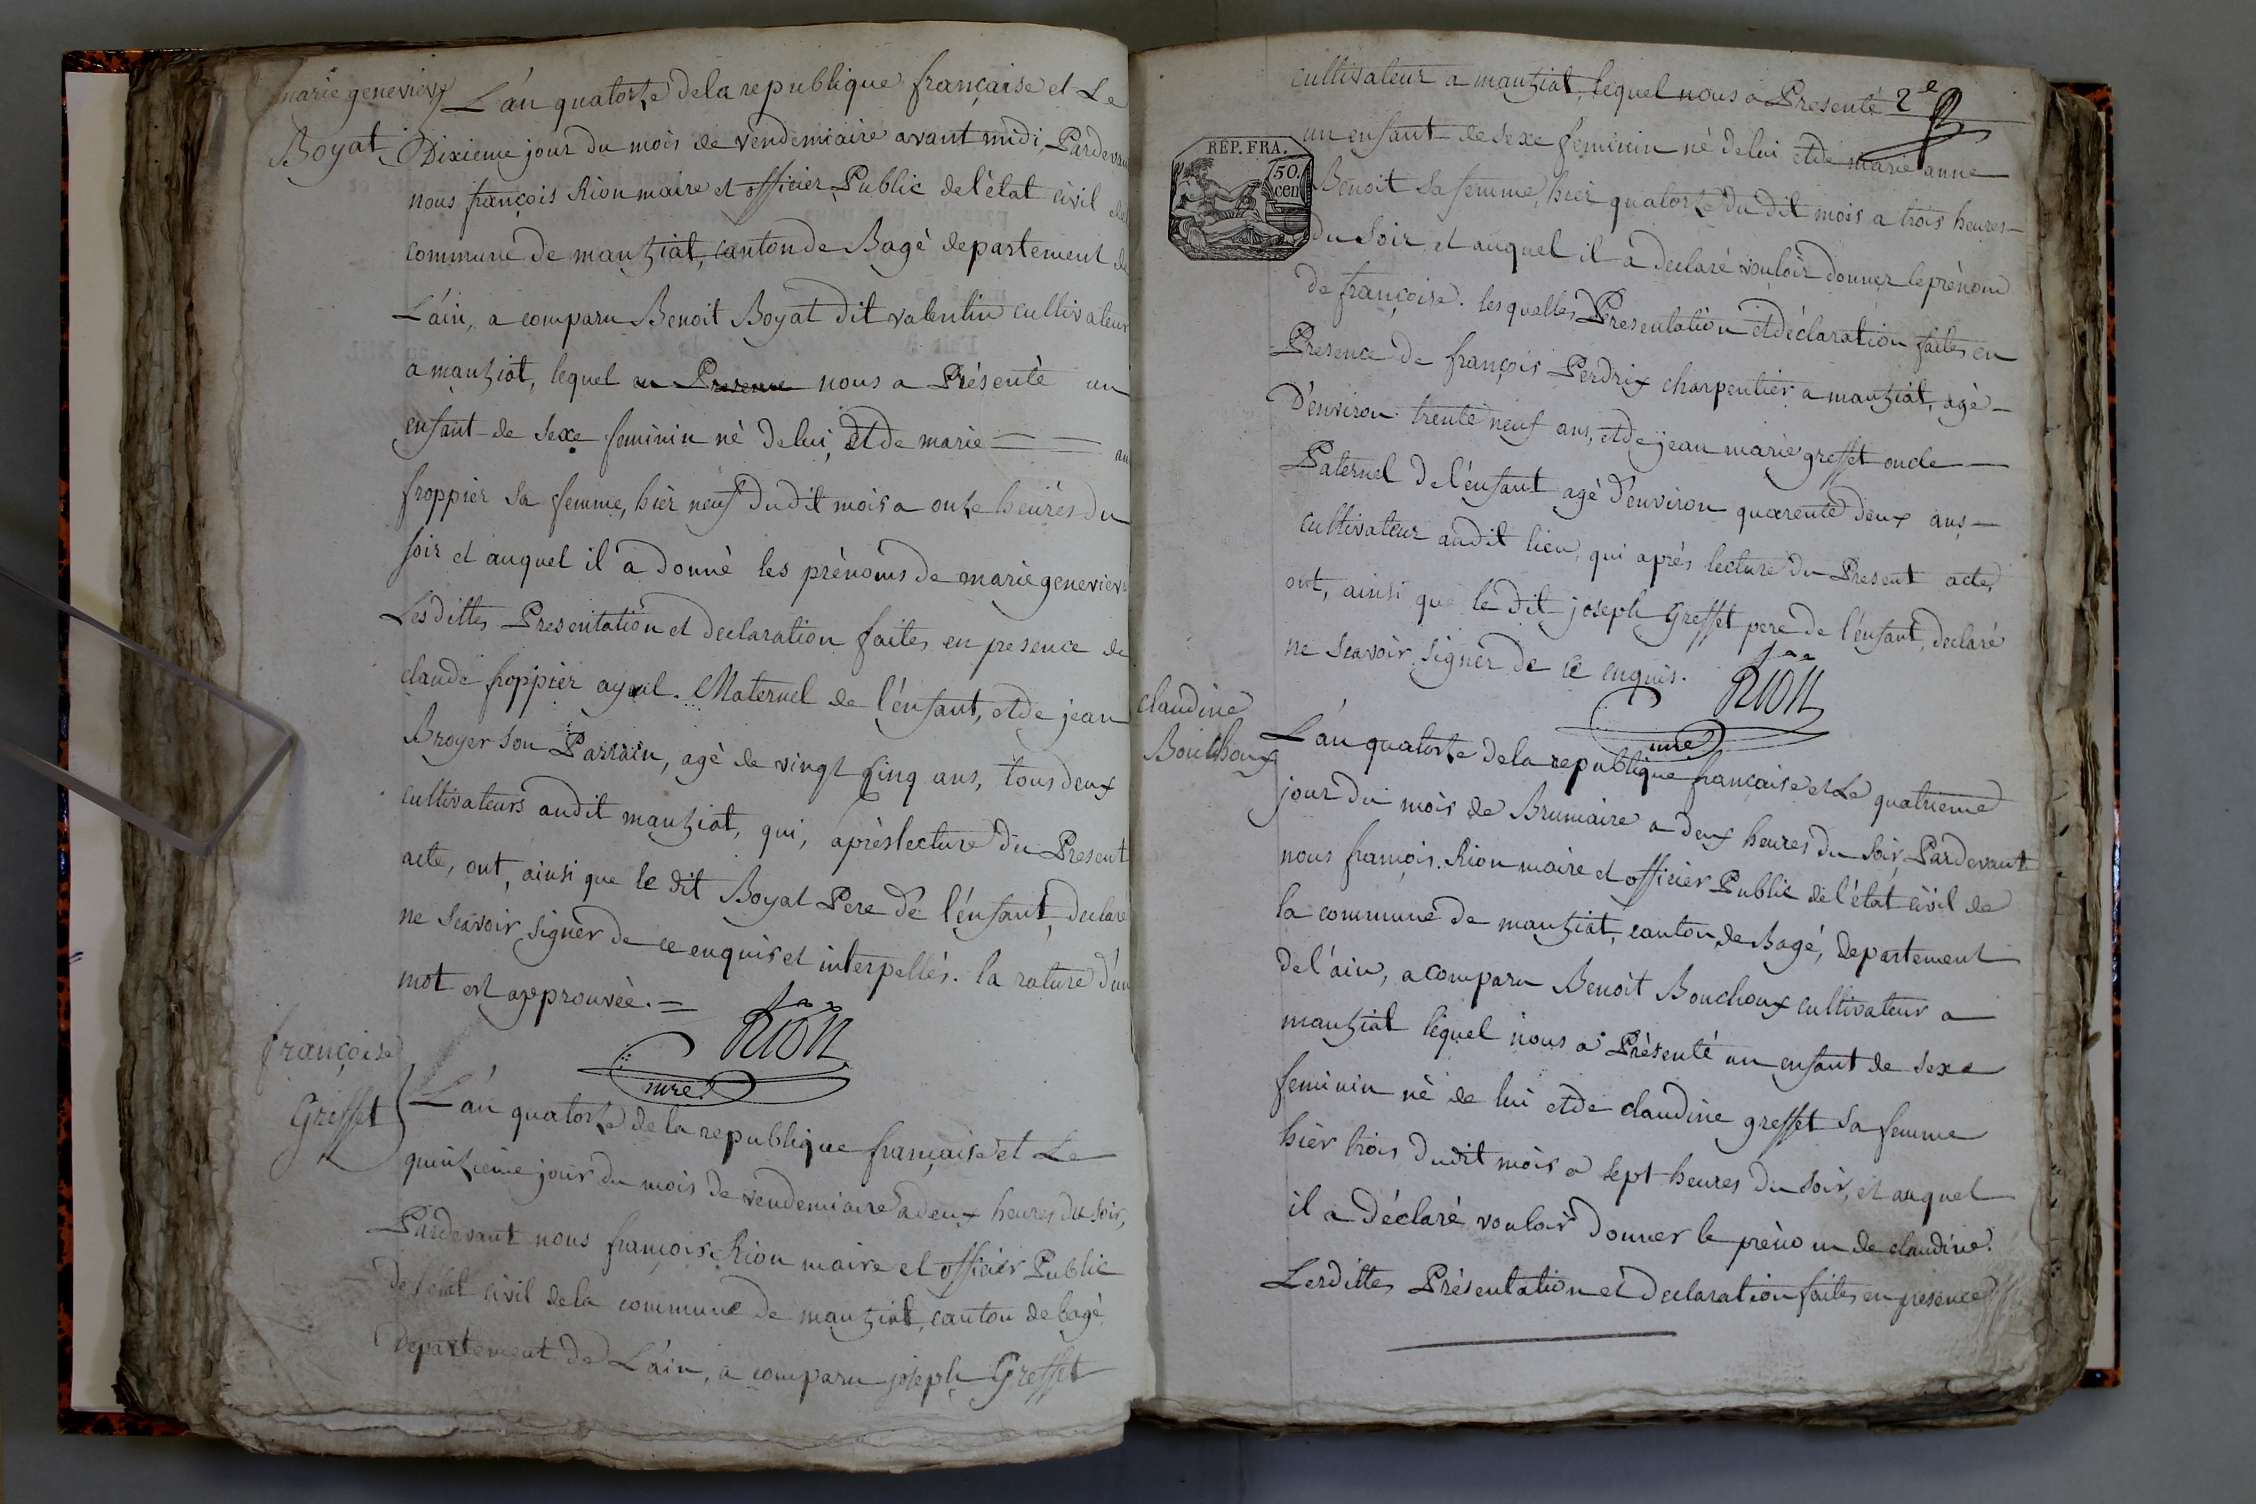 marie geneviev
Boyat
L'an quatorze de la republique française et Le
Dixieme jour du mois de vendemiaire avant midi, Pardevan
nous françois Rion maire et officier Public de l'état civil de
commune de manziat, canton de Bagé departement de
L'ain, a comparu Benoit Boyat dit valentin cultivateur
a manziat, lequel en Presence nous a Présenté un
enfant de sexe feminin né de lui, et de marie — — an
froppier sa femme, hier neuf du dit mois a onze heures du
soir et auquel il a donné les prénoms de marie geneviev
Lesdittes Presentation et declaration faites en presence de
claude froppier ayeul Maternel de l'enfant, et de jean
Broyer son Parrain, agé de vingt cinq ans, tous deux
cultivateurs audit manziat, qui, après lecture du Present
acte, ont, ainsi que le dit Boyat Pere de l'enfant, declaré
ne scavoir signer de ce enquis et interpellés. la rature d'un
mot est approuvée. =
Rion
mre
françoise
Greffet
L'an quatorze de la republique française et Le
quinzieme jour du mois de vendemiaire a deux heures du soir,
Pardevant nous françois Rion maire et officier Public
de l'état civil de la commune de manziat, canton de bagé
Departement de L'ain, a comparu joseph Greffet
2e
cultivateur a manziat, lequel nous a Presenté
un enfant de sexe feminin né de lui et de marie anne
REP. FRA.
50.
cen
Benoit sa femme, hier quatorze du dit mois a trois heures
du soir et auquel il a declaré vouloir donner le prénom
de françoise. lesquelles Presentation et déclaration faites en
Presence de françois Perdrix charpentier a manziat, agé
D'environ trente neuf ans, et de jean marie greffet oncle
Paternel de l'enfant agé d'environ quarente deux ans
cultivateur audit lieu, qui après lecture du Present acte,
ont, ainsi que le dit joseph Greffet pere de l'enfant, declaré
ne scavoir signer de ce enquis.
Rion
mre
claudine
Bouchoux
L'an quatorze de la republique française et Le quatrieme
jour du mois de Brumaire a deux heures du soir, Pardevant
nous françois Rion maire et officier Public de l'état civil de
la commune de manziat, canton de Bagé, departement
de l'ain, a comparu Benoit Bouchoux cultivateur a
manziat lequel nous a Présenté un enfant de sexe
feminin né de lui et de claudine greffet sa femme
hier trois dudit mois a sept heures du soir, et auquel
il a déclaré vouloir donner le prénom de claudine.
Lesdittes Présentation et declaration faites en presence